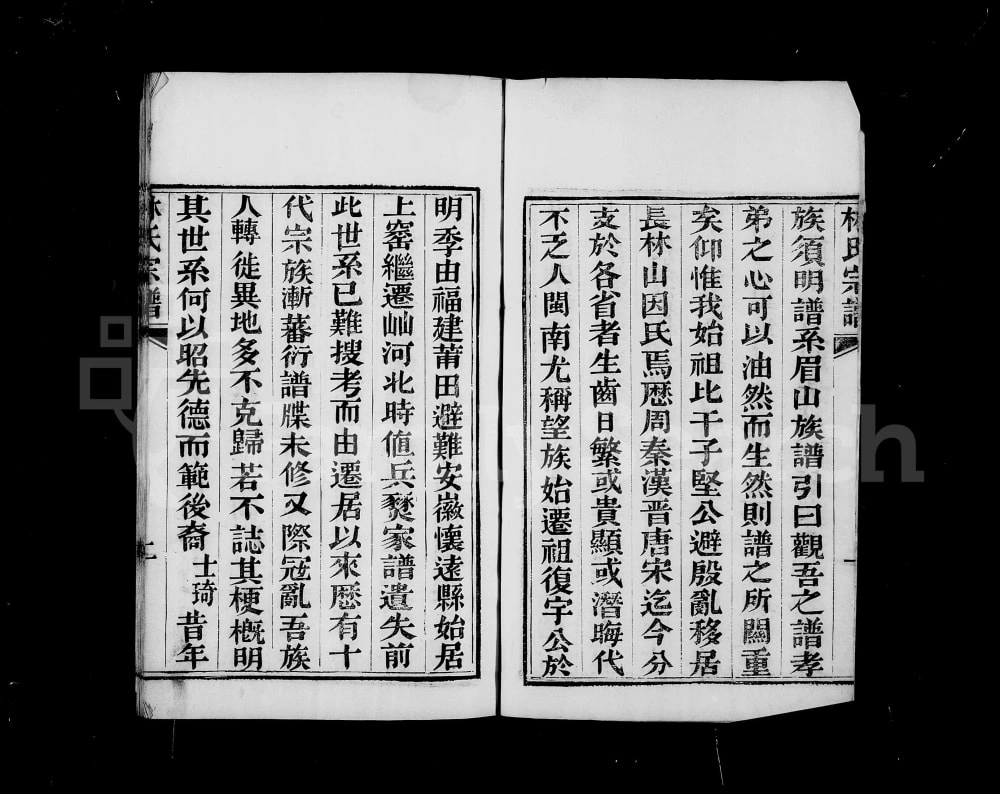 林氏宗譜
族須明譜系眉山族譜引曰觀吾之譜孝
弟之心可以油然而生然則譜之所關重
矣仰惟我始祖比干子堅公避殷亂移居
長林山因氏焉歷周秦漢晋唐宋迄今分
支於各省者生齒日繁或貴顯或潛晦代
不乏人閩南尤稱望族始遷祖復宇公於
明季由福建莆田避難安徽懷遠縣始居
上窰繼遷屾河北時值兵燹家譜遺失前
此世系已難搜考而由遷居以來歷有十
代宗族漸蕃衍譜牒未修又際冦亂吾族
人轉徙異地多不克歸若不誌其梗槪明
其世系何以昭先德而範後裔士琦昔年
林氏宗譜